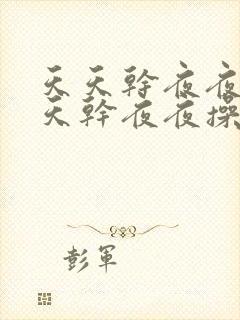 天天幹夜夜
天幹夜夜操
彭軍